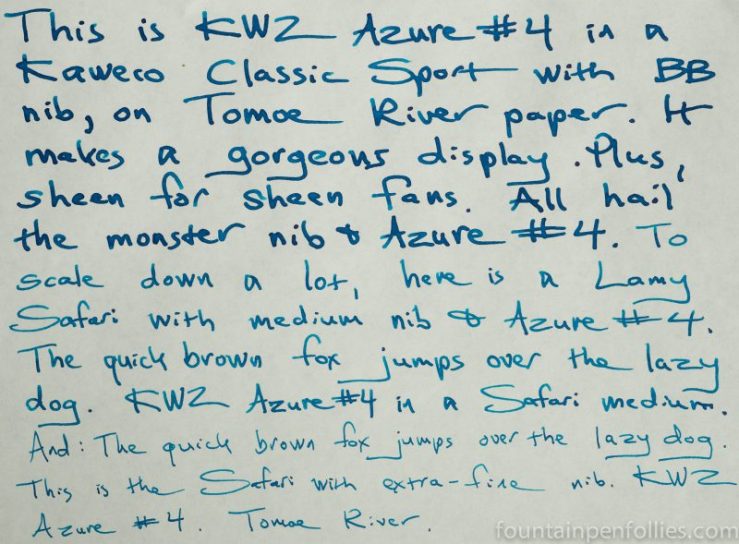 This is KWZ Azure #4 in a
Kaweco Classic Sport with BB
nib, on Tomoe River paper. It
makes a gorgeous display. Plus,
sheen for sheen fans. All hail
the monster nib & Azure #4. To
scale down a lot, here is a Lamy
Safari with medium nib & Azure #4.
The quick brown fox jumps over the lazy
dog. KWZ Azure #4 in a Safari medium.
And: The quick brown fox jumps over the lazy dog.
This is the Safari with extra-fine nib. KWZ
Azure #4. Tomoe River.
fountainpenfollies.com